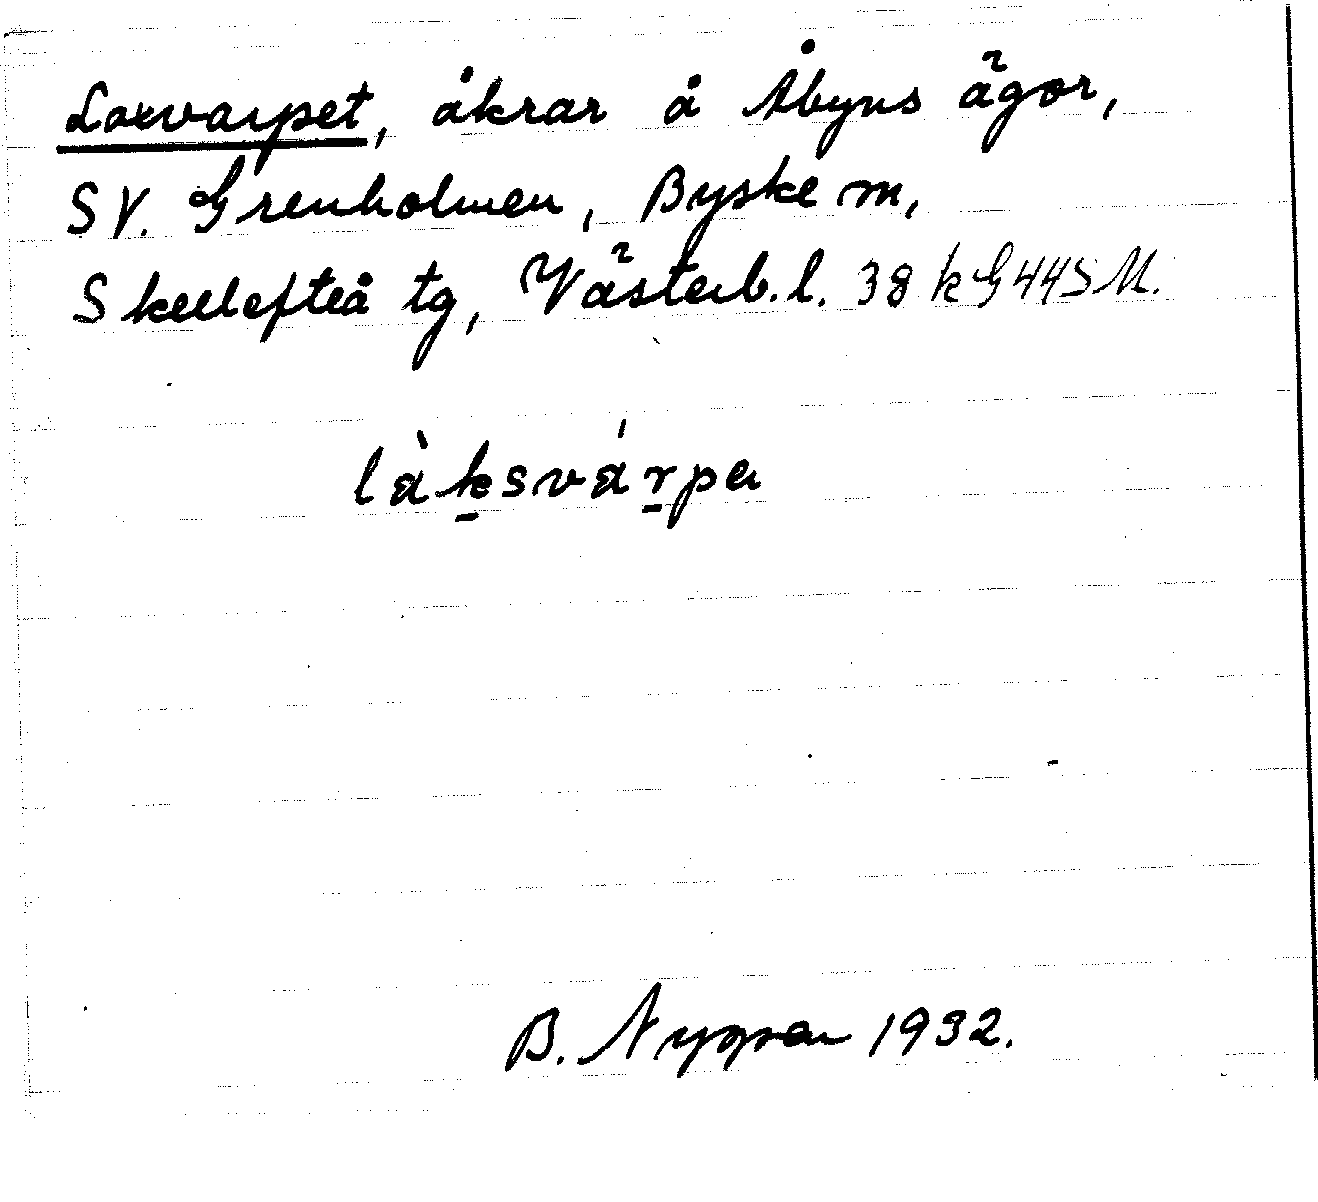 Laxvarpet, åkrar å Åbyns ägor,
SV. Grenholmen, Byske sn,
Skellefteå tg, Västerb. l. 38 k G 44 S M.
làksvárpa
B. Nygren 1932.